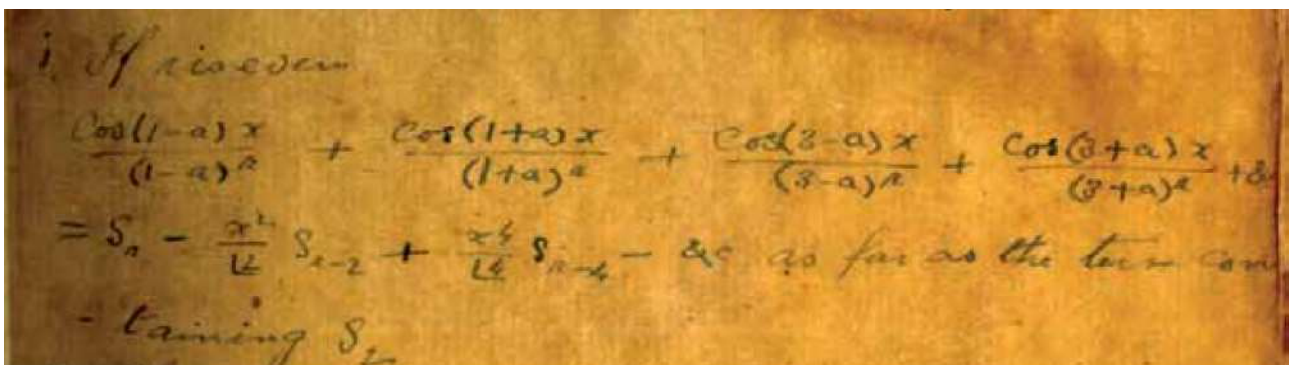 i. If r is even
Cos(1-a)x/(1-a)^r + Cos(1+a)x/(1+a)^r + Cos(3-a)x/(3-a)^r + Cos(3+a)x/(3+a)^r + &
= S_r - x^2/|2 S_{r-2} + x^4/|4 S_{r-4} - &c as far as the term con
- taining S_2